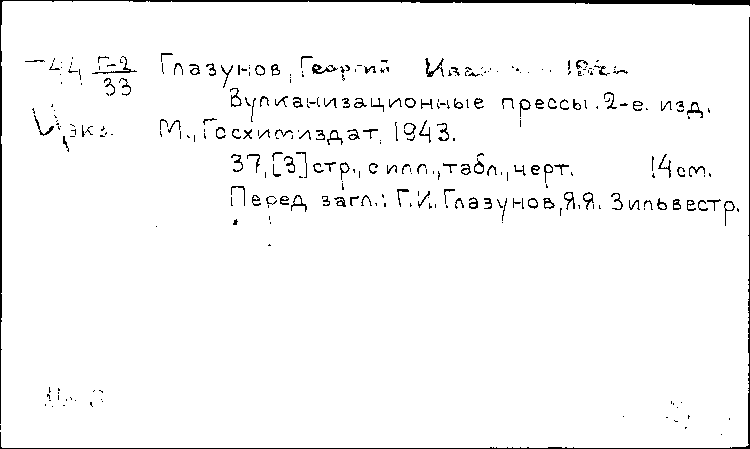 44 Г-2/33 Глазунов, Георгий
Вулканизационные прессы. 2-е. изд.
экз. М., Госхимиздат, 1943.
37, [3] стр., с илл., табл., черт. 14 см.
Перед загл.: Г.И. Глазунов, Я.Я. Зильвестр.